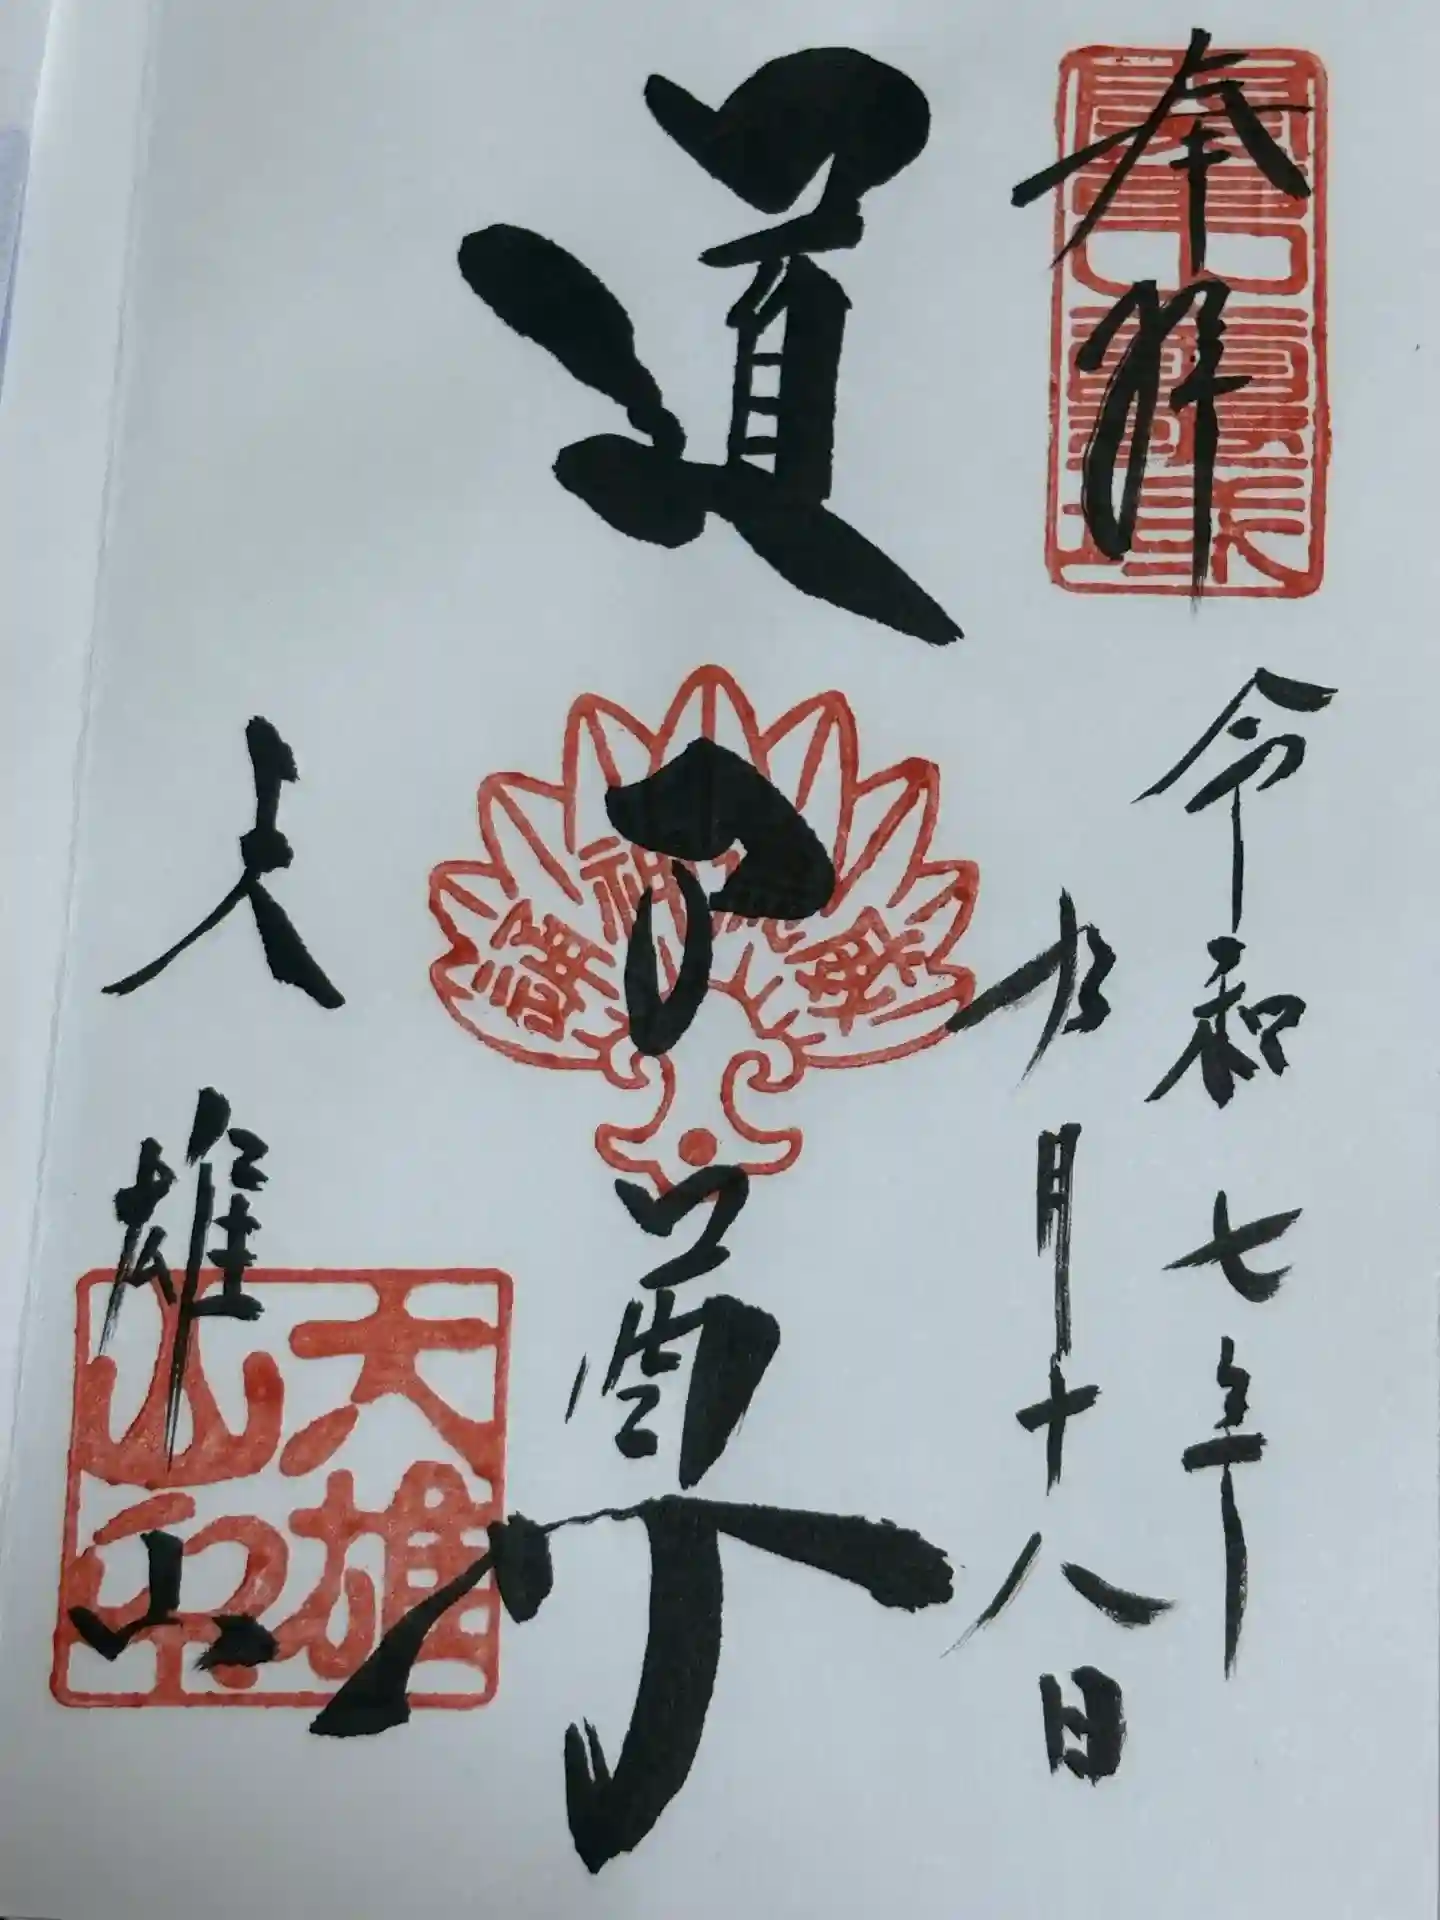 奉拝
令和七年
九月十八日
道了尊
大雄山
大雄
山印